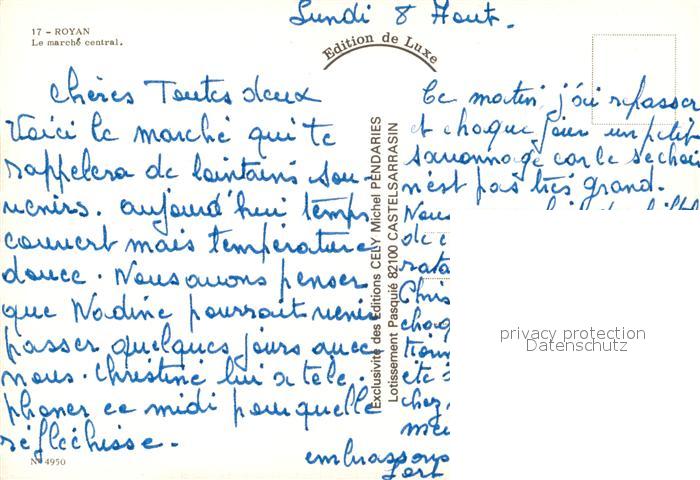 Lundi 8 Aout.
17 - ROYAN
Le marché central.
Edition de Luxe
chères Toutes deux
Voici le marché qui te
rappelera de lointains sou-
venirs. aujourd'hui temps
couvert mais température
douce. Nous avons penser
que Nadine pourrait venir
passer quelques jours avec
nous. Christine lui a télé.
phoner ce midi pour quelle
réfléchisse.
N° 4950
Exclusivité des Editions CELY Michel PENDARIES
Lotissement Pasquié 82100 CASTELSARRASIN
Ce matin j'ai repasser
et chaque jour un petit
savonnage car le sechoir
n'est pas très grand.
Nous
de
Chris
chaq
etc
chez,
embrassons
privacy protection
Datenschutz